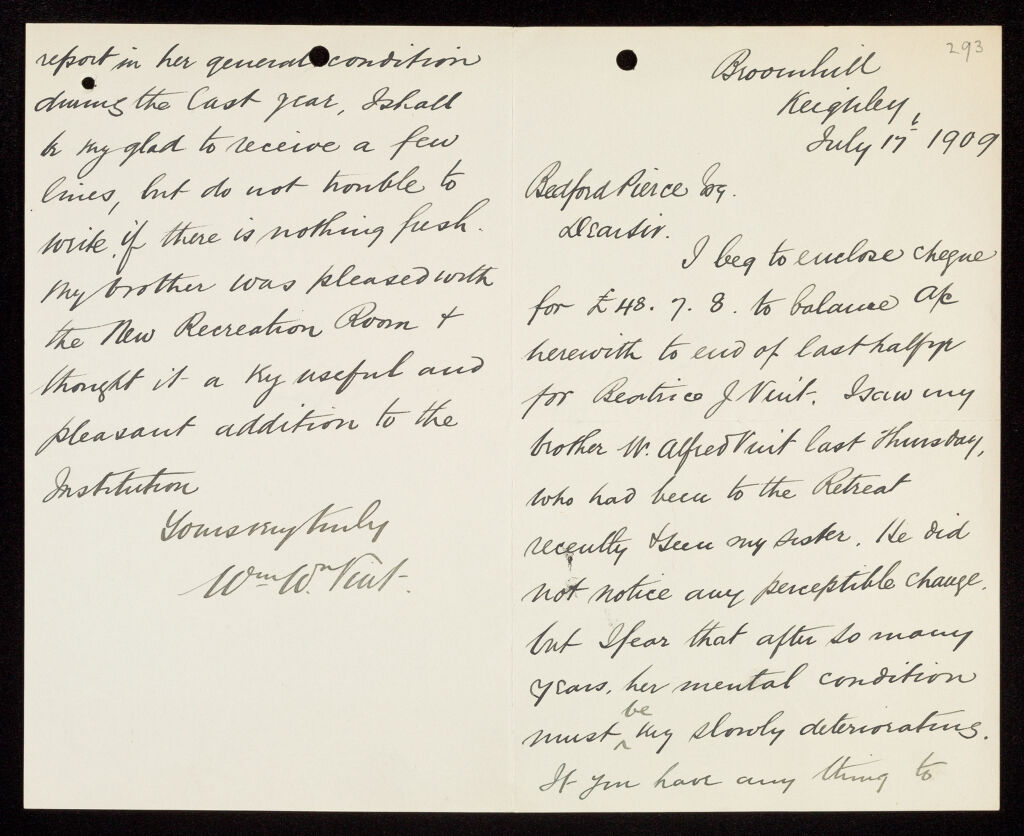 293
Broomhill
Keighley,
July 17t 1909
Bedford Pierce Esq.
Dear Sir.
I beg to enclose cheque
for £48. 7. 8. to balance a/c
herewith to end of last half yr
for Beatrice J Vint. I saw my
brother W. Alfred Vint last Thursday,
who had been to the Retreat
recently & seen my sister. He did
not notice any perceptible change.
but I fear that after so many
years, her mental condition
must be vy slowly deteriorating.
If you have any thing to
report in her general condition
during the last year, I shall
be vy glad to receive a few
lines, but do not trouble to
write, if there is nothing fresh.
My brother was pleased with
the New Recreation Room &
thought it a vy useful and
pleasant addition to the
Institution
Yours very truly
Wm Wn Vint.